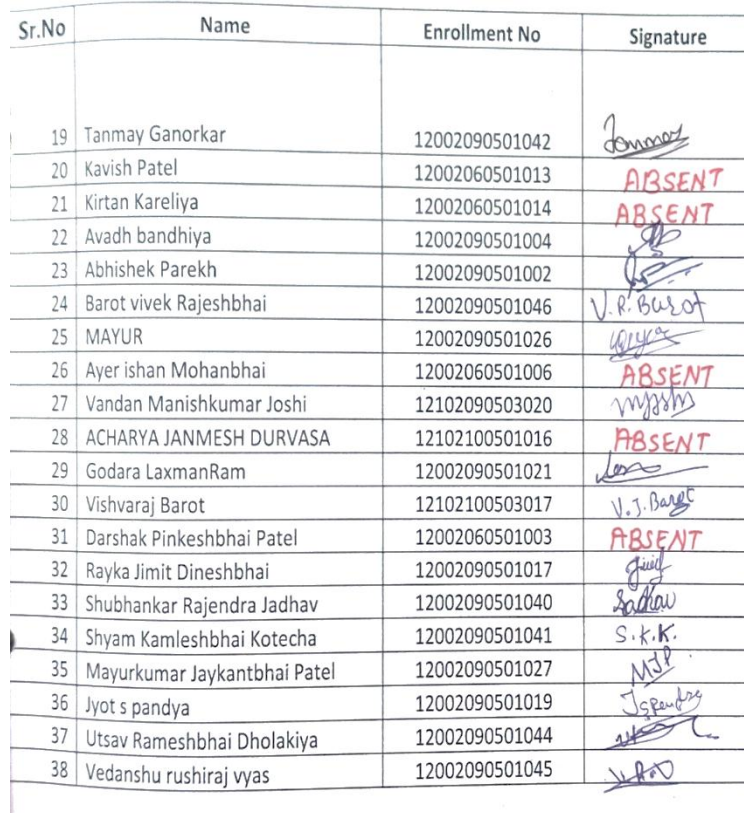 Sr.No Name Enrollment No Signature
19 Tanmay Ganorkar 12002090501042 Tanmay
20 Kavish Patel 12002060501013 ABSENT
21 Kirtan Kareliya 12002060501014 ABSENT
22 Avadh bandhiya 12002090501004
23 Abhishek Parekh 12002090501002
24 Barot vivek Rajeshbhai 12002090501046 V.R.Barot
25 MAYUR 12002090501026
26 Ayer ishan Mohanbhai 12002060501006 ABSENT
27 Vandan Manishkumar Joshi 12102090503020
28 ACHARYA JANMESH DURVASA 12102100501016 ABSENT
29 Godara LaxmanRam 12002090501021
30 Vishvaraj Barot 12102100503017 V.J.Barot
31 Darshak Pinkeshbhai Patel 12002060501003 ABSENT
32 Rayka Jimit Dineshbhai 12002090501017
33 Shubhankar Rajendra Jadhav 12002090501040 Jadhav
34 Shyam Kamleshbhai Kotecha 12002090501041 S.K.K.
35 Mayurkumar Jaykantbhai Patel 12002090501027 MJP
36 Jyot s pandya 12002090501019
37 Utsav Rameshbhai Dholakiya 12002090501044
38 Vedanshu rushiraj vyas 12002090501045